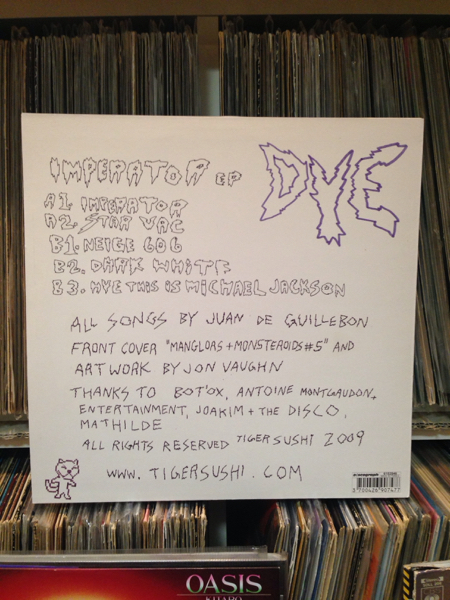 IMPERATOR EP
DYE
A1. IMPERATOR
A2. STAR VAC
B1. NEIGE 606
B2. DARK WHITE
B3. HYE THIS IS MICHAEL JACKSON
ALL SONGS BY JUAN DE GUILLEBON
FRONT COVER "MANGLORS + MONSTEROIDS #5" AND
ARTWORK BY JON VAUGHN
THANKS TO BOT'OX, ANTOINE MONTGAUDON,
ENTERTAINMENT, JOAKIM + THE DISCO,
MATHILDE
ALL RIGHTS RESERVED TIGERSUSHI 2009
WWW.TIGERSUSHI.COM
3 700426 907677
OASIS
KITARO